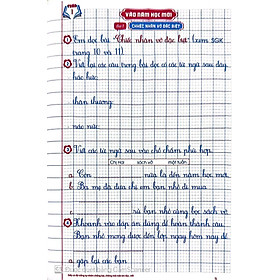 TUẦN
1
VÀO NĂM HỌC MỚI
Bài 1 CHIẾC NHÃN VỞ ĐẶC BIỆT
1 Em đọc bài "Chiếc nhãn vở đặc biệt" (xem SGK
trang 10 và 11).
2 Viết lại các câu trong bài đọc có các từ ngữ sau đây:
háo hức:
thân thương:
nắc nỏm:
3 Viết các từ ngữ sau vào chỗ chấm phù hợp.
Chị Hai sách vở một tuần
a. Còn nữa là đến năm học mới.
b. Ba mẹ đã đưa chị em bạn nhỏ đi mua
và bạn nhỏ cùng bọc sách vở.
4 Khoanh vào đáp án đúng để hoàn thành câu:
Bạn nhỏ mong được đến lớp ngay hôm nay để
a. gặp lại các bạn.